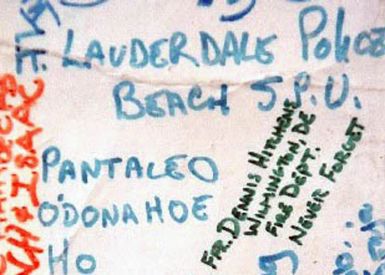 FT. LAUDERDALE POLICE
BEACH S.P.U.
PANTALEO
O'DONAHOE
HO
FR. DENNIS HITCHENS
WILMINGTON, DE
FIRE DEPT.
NEVER FORGET
ISAAC